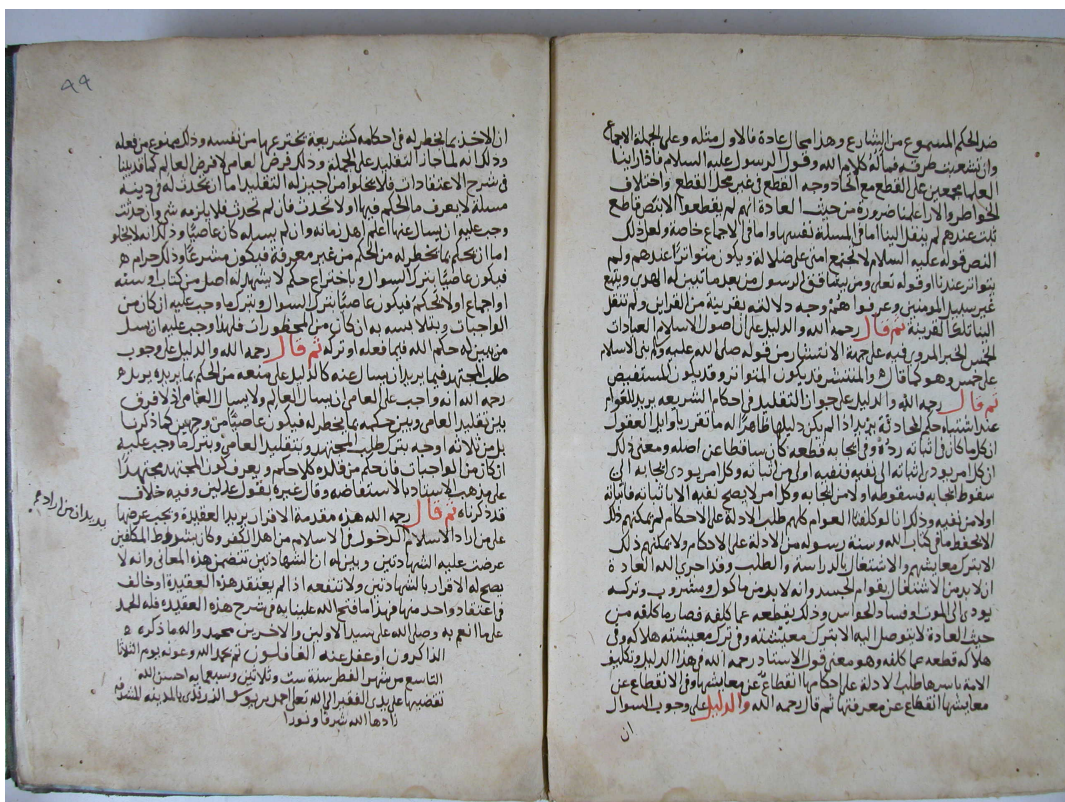 ضد الحكم المسموع من الشارع وهذا محال عادة فالاول مثله وعلى الجملة الاجماع
وان تشعبت طرقه فماله كلام الله وقول الرسول عليه السلام فاذا راينا
العلما مجمعين على القطع مع اتحاد وجه القطع في غير محل القطع واختلاف
الخواطر والارا علمنا ضرورة من حيث العادة انهم لم يقطعوا الا لنص قاطع
ثبت عندهم لم ينقل الينا اما في المسلة نفسها واما في الاجماع خاصة ولعل ذلك
النص قوله عليه السلام لا تجتمع امتي على ضلالة ويكون متواترا عندهم ولم
يتواتر عندنا او قوله تعلى ومن يشاقق الرسول من بعد ما تبين له الهدى ويتبع
غير سبيل المومنين وعرفوا هم وجه دلالته بقرينة من القراين ولم تنقل
الينا تلك القرينة ثم قال رحمه الله والدليل على ان اصول الاسلام العبادات
الخمس الخبر المروي فيه على جهة الانتشار من قوله صلى الله عليه وسلم بني الاسلام
على خمس وهو كما قال والمنتشر قد يكون المتواتر وقد يكون المستفيض
ثم قال رحمه الله والدليل على جواز التقليد في احكام الشريعة يريد للعوام
عند اشتباه حكم الحادثة يريد اذا لم يكن دليلها ظاهرا له ما تقرر باوايل العقول
ان كل ما كان في اثباته رده وفي ايجابه قطعه كان ساقطا عن اصله ومعنى ذلك
ان كل امر يودي اثباته الى نفيه فنفيه اولى من اثباته وكل امر يودي ايجابه الى
سقوط ايجابه فسقوطه اولا من ايجابه وكل امر لا يصح نفيه الا باثباته فاثباته
اولا من نفيه وذلك انا لو كلفنا العوام كلهم طلب الادلة على الاحكام لم يمكنهم ذلك
الا بحفظ ما في كتاب الله وسنة رسوله من الادلة على الاحكام ولا يمكنهم ذلك
الا بترك معايشهم والاشتغال بالدراسة والطلب وقد اجرى الله العادة
ان لا بد من الاشتغال بقوام الجسد وانه لا بد من ماكول ومشروب وتركه
يودي الى الموت او فساد الحواس وذلك يقطعه عما كلفه فصار ما كلفه من
حيث العادة لا يتوصل اليه الا بترك معيشته وفي ترك معيشته هلاكه وفي
هلاكه قطعه عما كلفه وهو معنى قول الاستاد رحمه الله في هذا الدليل وتكليف
الامة باسرها طلب الادلة على احكامها انقطاع عن معايشها وفي الانقطاع عن
معايشها انقطاع عن معرفتها ثم قال رحمه الله والدليل على وجوب السوال
ان
٩٩
ان الاخذ بما يخطر له في احكامه كشريعة يخترعها من نفسه وذلك ممنوع من فعله
وذلك انه لما جاز التقليد على الجملة وذلك فرض العامي لا فرض العالم كما قد بينا
في شرح الاعتقادات فلا يخلوا من اجيز له التقليد اما ان تحدث له في دينه
مسلة لا يعرف ما الحكم فيها او لا تحدث فان لم تحدث فلا يلزمه شي وان حدثت
وجب عليه ان يسال عنها اعلم اهل زمانه وان لم يسله كان عاصيا وذلك انه لا يخلوا
اما ان يحكم بما يخطر له من الحكم من غير معرفة فيكون مشرعا وذلك حرام
فيكون عاصيا بترك السوال وباختراع حكم لا يشهد له اصل من كتاب او سنة
او اجماع او لا يحكم فيكون عاصيا بترك السوال وبترك ما وجب عليه ان كان من
الواجبات وبتلابسه به ان كان من المحظورات فلهذا وجب عليه ان يسل
من يبين له حكم الله فيما فعله او تركه ثم قال رحمه الله والدليل على وجوب
طلب المجتهد فيما يريد ان يسال عنه كالدليل على منعه من الحكم بما يريده يريد
رحمه الله انه واجب على العامي ان يسال العالم ولا يسال العامي اذ لا فرق
بين تقليد العامي وبين حكمه بما يخطر له فيكون عاصيا من وجهين كما ذكرنا
بل من ثلاثة اوجه بترك طلب المجتهد وبتقليد العامي وبترك ما وجب عليه
ان كان من الواجبات فان حكم من قلده كلا حكم ويعرف كون المجتهد مجتهدا
على مذهب الاستاد بالاستفاضة وقال غيره بقول عدلين وفيه خلاف
قد ذكرناه ثم قال رحمه الله هذه مقدمة الاقرار يريد العقيدة ويجب عرضها
على من اراد الاسلام الدخول في الاسلام من اهل الكفر وكان بشروط المكلفين
يريد ان من اراد
عرضت عليه الشهادتين وبين له ان الشهادتين تتضمن هذه المعاني وانه لا
يصح له الاقرار بالشهادتين ولا تنفعه اذا لم يعتقد هذه العقيدة او خالف
في اعتقاد واحد منها فهذا ما فتح الله علينا به في شرح هذه العقيدة فله الحمد
على ما انعم به وصلى الله على سيد الاولين والاخرين محمد واله ما ذكره
الذاكرون او غفل عنه الغافلون تم بحمد الله وعونه يوم الثلاثا
التاسع من شهر الفطر سنة ست وثلاثين وسبعمايه احسن الله
تقضيها على يدي الفقير الى الله تعلى احمد بن يوسف الزرندي بالمدينة المشرفة
زادها الله شرفا ونورا